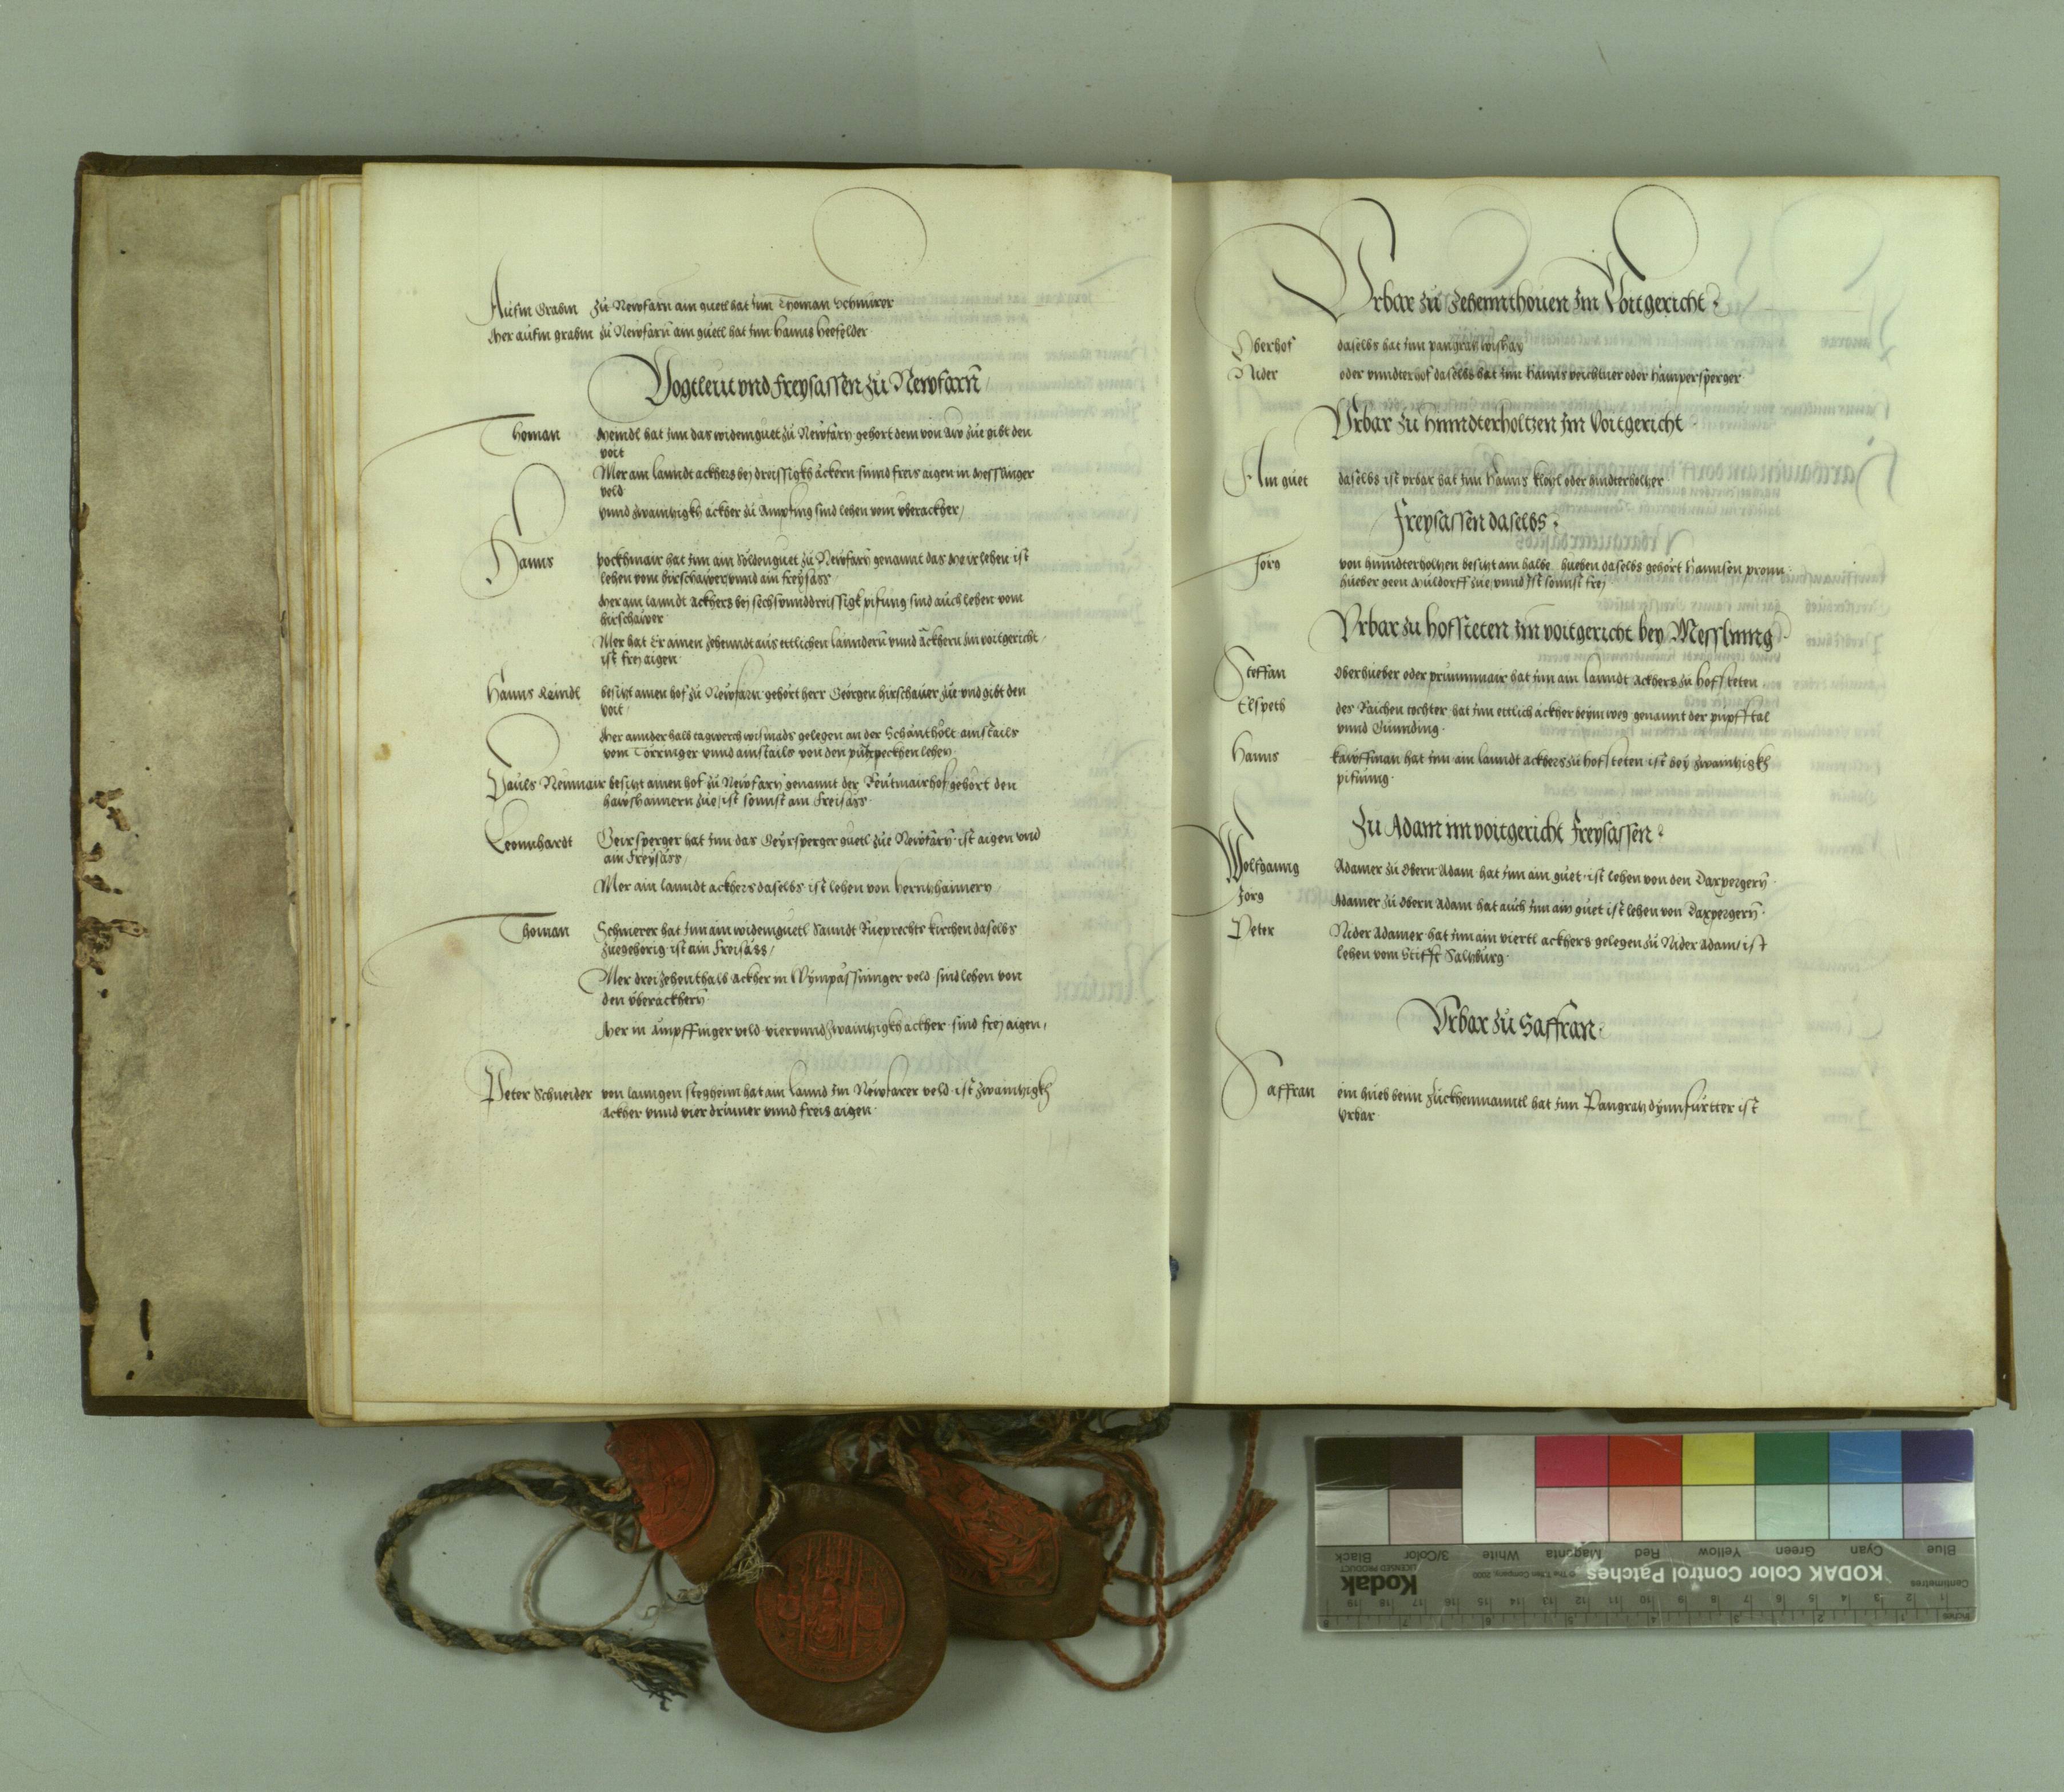 Aufm Grabm zu Newfarn ain guetl hat Inn Thoman Schmirer
Mer aufm grabm zu Newfarn ain guetl hat Inn Hanns Heefelder
Vogtleut vnd freysassen zu Newfarn
Thoman Meindl hat Inn das widemguet zu Newfarn gehort dem von Aw zue gibt den
voit
Mer ain lanndt ackhers bej dreissigkh äckern sinnd freis aigen in Messlinger
veld
vnnd zwaintzigkh ackher zu Ampfing sind lehen vom vberackher
Hanns pockhmair hat Inn ain Söldenguet zu Newfarn genannt das Meirlehen ist
lehen vom hirschawer vnnd ain freysäss
Mer ain lanndt ackhers bej sechsvnnddreissigk pifang sind auch lehen vom
hirschawer
Mer hat Er ainen zehenndt aus ettlichen lanndern vnnd ackhern Im voitgericht
ist frej aigen
Hanns Reindl besitzt ainen hof zu Newfarn gehört herr Georgen hirschauer zue vnd gibt den
voit
Mer annderhalb tagwerch wismads gelegen an der Schanntholt ainstails
vom Törringer vnnd ainstails von den pützpeckhen lehen
Pauls Neumair besitzt ainen hof zu Newfarn genannt der Reutmairhof gehört den
hawshamern zue ist sonnst ain freisäss
Leonnhardt Geirsperger hat Inn das Geyrsperger guetl zue Newfarn ist aigen vnd
ain freysäss
Mer ain lanndt ackhers daselbs ist lehen von hernnhaimern
Thoman Schmerer hat Inn ain widemguetl Sanndt Rueprechts kirchen daselbs
zuegehörig ist ain freisäss
Mer dreizehenthalb ackher in Wympassinger veld sind lehen von
den vberackhern
Mer in Ampffinger veld viervnndzwaintzigkh ackher sind frej aigen
Peter Schneider von lanngen stegheim hat ain lannd Im Newfarer veld ist zwaintzigkh
ackher vnnd vier drümer vnnd freis aigen
Vrbar zu Zehennthouen Im Voitgericht
Oberhof daselbs hat Inn pangratz wishay
Nider oder vnndterhof daselbs hat Inn Hanns veichtner oder hampersperger
Vrbar zu hinndterholtzen Im Voitgericht
Ain guet daselbs ist vrbar hat Inn Hanns klotzl oder hindterholtzer
Freysassen daselbs
Jorg von hinndterholtzen besitzt ain halbe hueben daselbs gehört Hannsen pronn
hueber geen Müldorff zue vnnd Ist sonnst frej
Vrbar zu hofsteten Im voitgericht bey Messling
Steffan Oberhueber oder prunnmair hat Inn ain lanndt ackhers zu hofsteten
Elspeth des Raichen tochter hat Inn ettlich ackher beym weg genannt der pupfftal
vnnd Grinnding
Hanns kawffman hat Inn ain lanndt ackhers zu hofsteten ist bey zwaintzigkh
pifanng
Zu Adam im voitgericht freysässen
Wolfganng Adamer zu Obern Adam hat Inn ain guet ist lehen von den Daxpergern
Jorg Adamer zu Obern Adam hat auch Inn ain guet ist lehen von Daxpergern
Peter Nider Adamer hat Inn ain viertl ackhers gelegen zu Nider Adam ist
lehen vom Stifft Saltzburg
Vrbar zu Saffran
Saffran ein hueb beim zuckhenmanntl hat Inn Pangratz dynnfurtter ist
Vrbar
Blue Cyan Green Yellow Red Magenta White 3/Color Black
KODAK Color Control Patches
Kodak
LICENSED PRODUCT
© The Tiffen Company, 2000
Centimetres
Inches